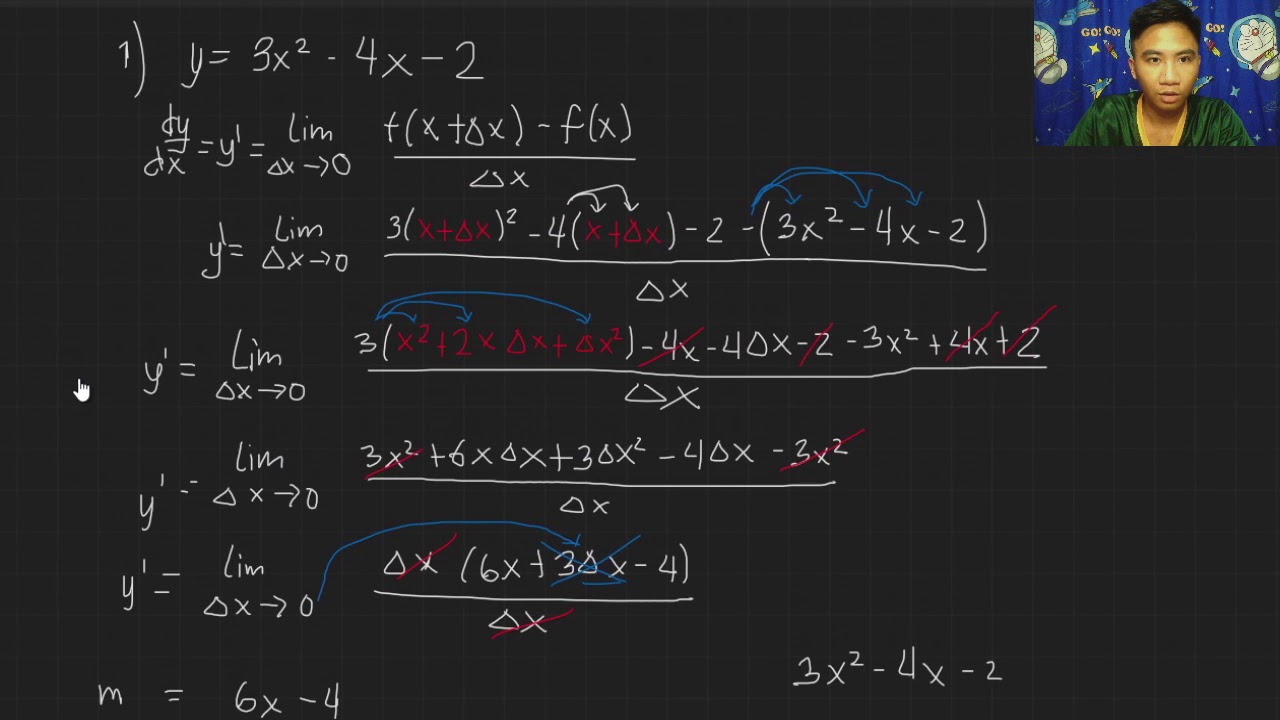 1) y = 3x² - 4x - 2
dy/dx = y' = lim Δx→0 f(x+Δx) - f(x) / Δx
y' = lim Δx→0 3(x+Δx)² - 4(x+Δx) - 2 - (3x² - 4x - 2) / Δx
y' = lim Δx→0 3(x² + 2xΔx + Δx²) - 4x - 4Δx - 2 - 3x² + 4x + 2 / Δx
y' = lim Δx→0 3x² + 6xΔx + 3Δx² - 4Δx - 3x² / Δx
y' = lim Δx→0 Δx (6x + 3Δx - 4) / Δx
3x² - 4x - 2
m = 6x - 4
GO! GO!
GO!